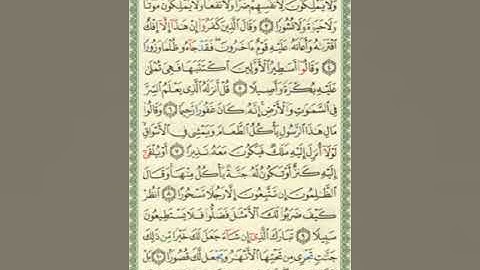 وَلَا يَمْلِكُونَ لِأَنفُسِهِمْ ضَرًّا وَلَا نَفْعًا وَلَا يَمْلِكُونَ مَوْتًا
وَلَا حَيَوٰةً وَلَا نُشُورًا ٣ وَقَالَ ٱلَّذِينَ كَفَرُوٓا۟ إِنْ هَـٰذَآ إِلَّآ إِفْكٌ
ٱفْتَرَىٰهُ وَأَعَانَهُۥ عَلَيْهِ قَوْمٌ ءَاخَرُونَ ۖ فَقَدْ جَآءُو ظُلْمًا وَزُورًا
٤ وَقَالُوٓا۟ أَسَـٰطِيرُ ٱلْأَوَّلِينَ ٱكْتَتَبَهَا فَهِىَ تُمْلَىٰ
عَلَيْهِ بُكْرَةً وَأَصِيلًا ٥ قُلْ أَنزَلَهُ ٱلَّذِى يَعْلَمُ ٱلسِّرَّ
فِى ٱلسَّمَـٰوَٰتِ وَٱلْأَرْضِ ۚ إِنَّهُۥ كَانَ غَفُورًا رَّحِيمًا ٦ وَقَالُوا۟
مَالِ هَـٰذَا ٱلرَّسُولِ يَأْكُلُ ٱلطَّعَامَ وَيَمْشِى فِى ٱلْأَسْوَاقِ ۙ
لَوْلَآ أُنزِلَ إِلَيْهِ مَلَكٌ فَيَكُونَ مَعَهُۥ نَذِيرًا ٧ أَوْ يُلْقَىٰٓ
إِلَيْهِ كَنزٌ أَوْ تَكُونُ لَهُۥ جَنَّةٌ يَأْكُلُ مِنْهَا ۚ وَقَالَ
ٱلظَّـٰلِمُونَ إِن تَتَّبِعُونَ إِلَّا رَجُلًا مَّسْحُورًا ٨ ٱنظُرْ
كَيْفَ ضَرَبُوا۟ لَكَ ٱلْأَمْثَـٰلَ فَضَلُّوا۟ فَلَا يَسْتَطِيعُونَ
سَبِيلًا ٩ تَبَارَكَ ٱلَّذِىٓ إِن شَآءَ جَعَلَ لَكَ خَيْرًا مِّن ذَٰلِكَ
جَنَّـٰتٍ تَجْرِى مِن تَحْتِهَا ٱلْأَنْهَـٰرُ وَيَجْعَل لَّكَ قُصُورًۢا ١٠ بَلْ